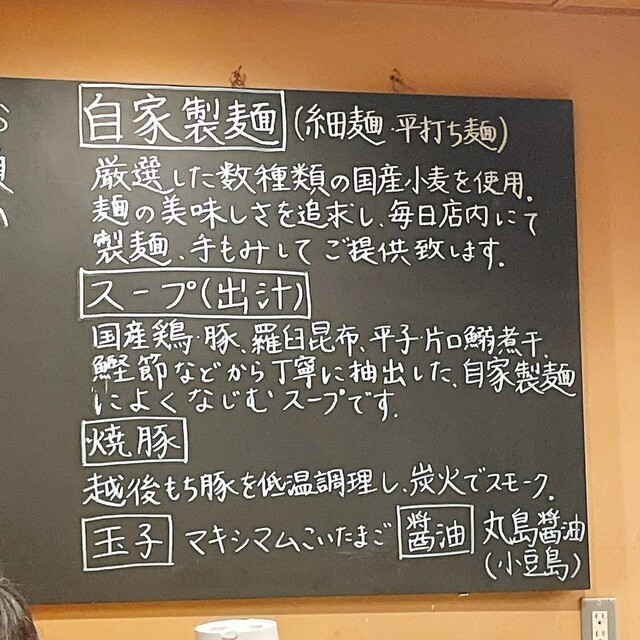 自家製麺(細麺・平打ち麺)
厳選した数種類の国産小麦を使用。
麺の美味しさを追求し、毎日店内にて
製麺、手もみしてご提供致します。
スープ(出汁)
国産鶏・豚、羅臼昆布、平子・片口鰯煮干、
鰹節などから丁寧に抽出した、自家製麺
によくなじむスープです。
焼豚
越後もち豚を低温調理し、炭火でスモーク。
玉子 マキシマムこいたまご 醤油 丸島醤油
(小豆島)